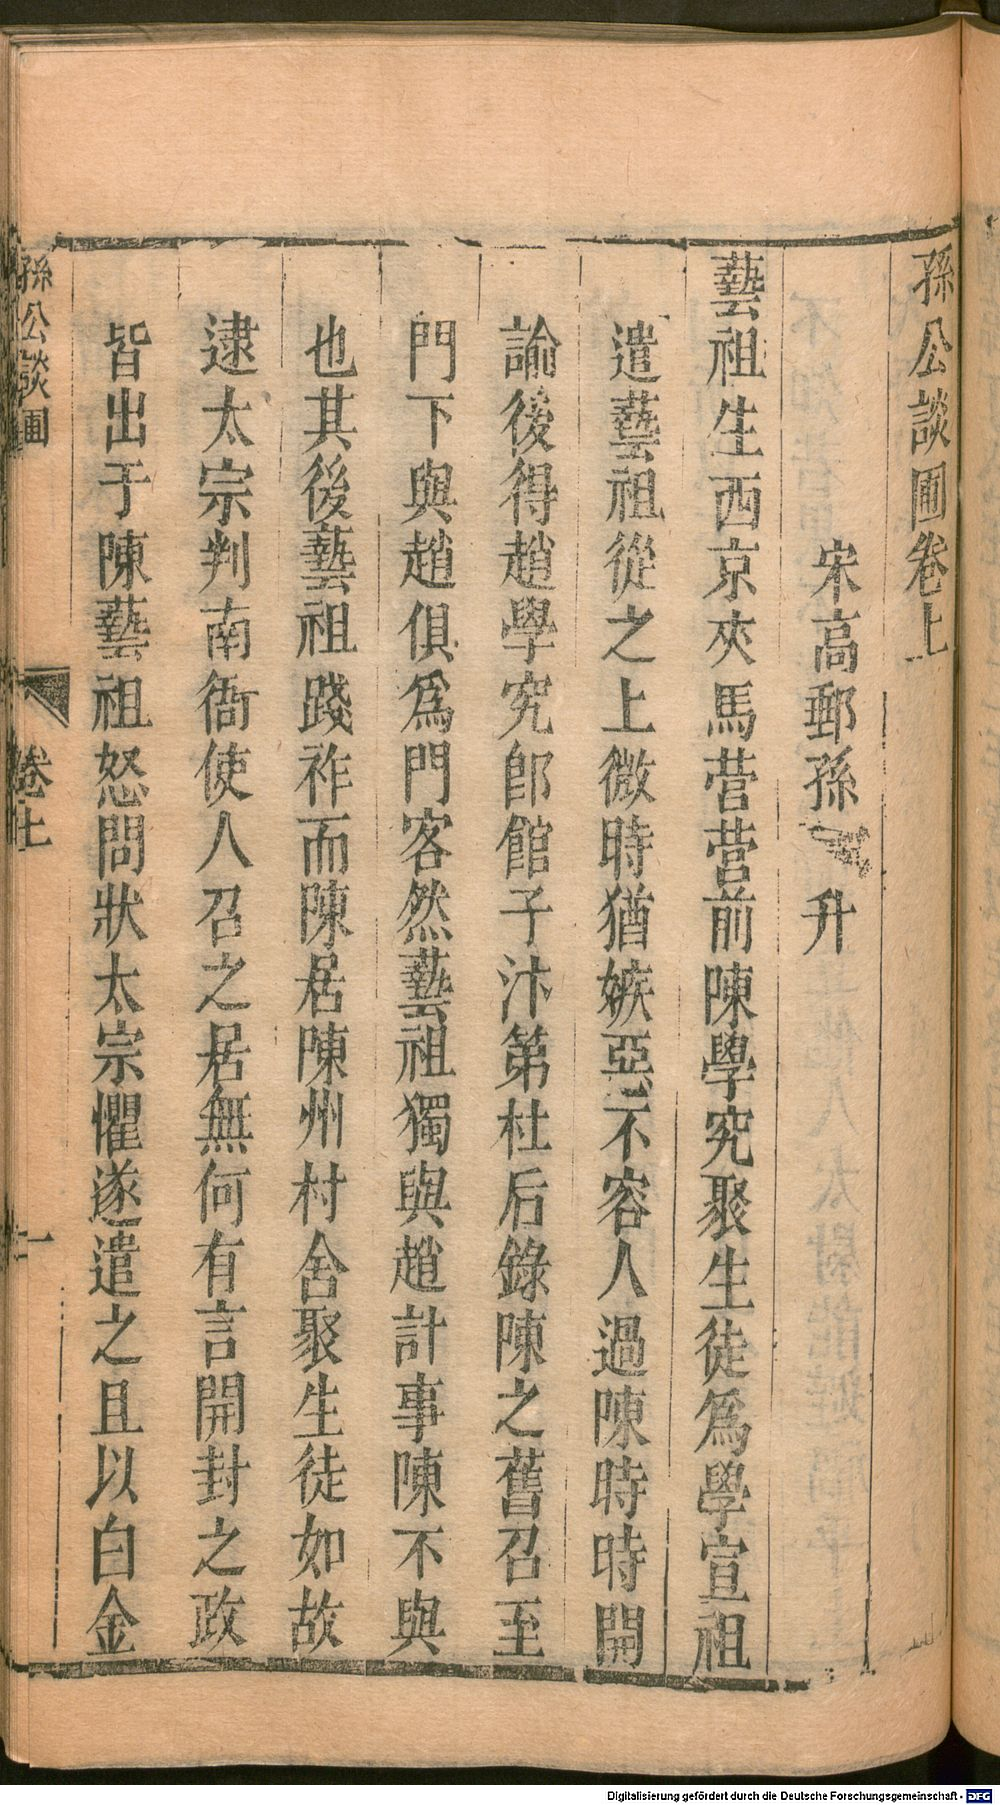 孫公談圃卷上
宋高郵孫 升
藝祖生西京夾馬營營前陳學究聚生徒爲學宣祖
遣藝祖從之上微時猶嫉惡不容人過陳時時開
諭後得趙學究卽館于汴第杜后錄陳之舊召至
門下與趙俱爲門客然藝祖獨與趙計事陳不與
也其後藝祖踐祚而陳居陳州村舍聚生徒如故
逮太宗判南衙使人召之居無何有言開封之政
皆出于陳藝祖怒問狀太宗懼遂遣之且以白金
孫公談圃
卷上
一
Digitalisierung gefördert durch die Deutsche Forschungsgemeinschaft - DFG